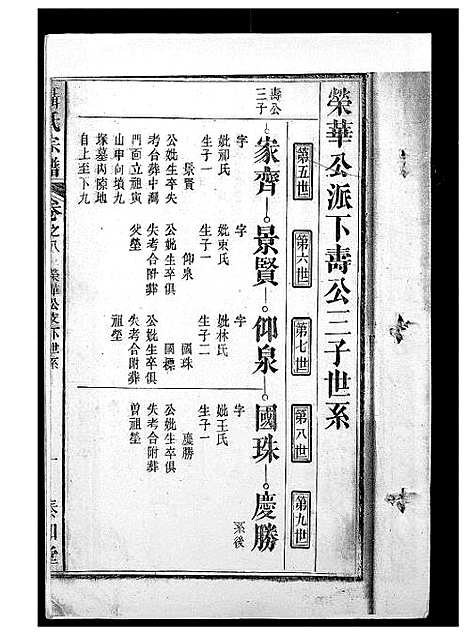 榮華公派下壽公三子世系
第五世
第六世
第七世
第八世
第九世
壽公
三子
家齊
景賢
仰泉
國珠
慶勝
系後
字
妣祁氏
生子一
景賢
公妣生卒失
考合葬中灣
門面立祖寅
山申向墳九
塚墓內隙地
自上至下九
字
妣東氏
生子一
仰泉
公妣生卒俱
失考合附葬
父塋
字
妣林氏
生子二
國珠
國標
公妣生卒俱
失考合附葬
祖塋
字
妣王氏
生子一
慶勝
公妣生卒俱
失考合附葬
曾祖塋
氏宗譜
卷之八
榮華公支下世系
一